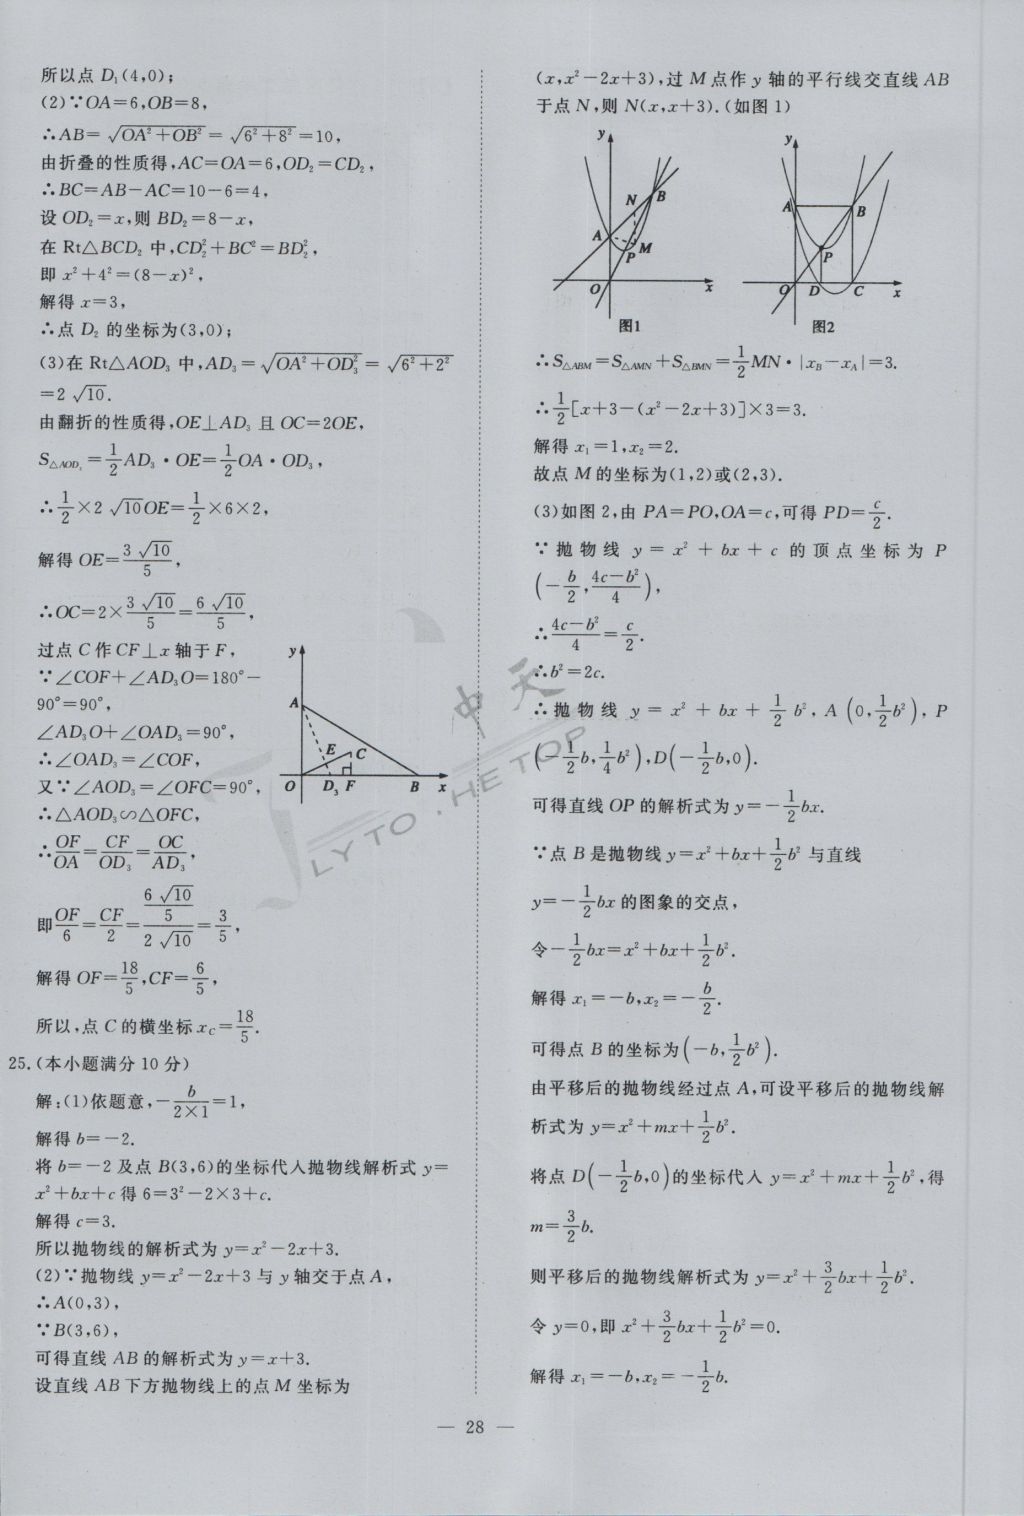 所以点 D₁(4,0);
(2)∵OA=6,OB=8,
∴AB=√(OA²+OB²)=√(6²+8²)=10,
由折叠的性质得,AC=OA=6,OD₂=CD₂,
∴BC=AB-AC=10-6=4,
设 OD₂=x,则 BD₂=8-x,
在 Rt△BCD₂ 中,CD₂²+BC²=BD₂²,
即 x²+4²=(8-x)²,
解得 x=3,
∴点 D₂ 的坐标为(3,0);
(3)在 Rt△AOD₃ 中,AD₃=√(OA²+OD₃²)=√(6²+2²)
=2√10.
由翻折的性质得,OE⊥AD₃ 且 OC=2OE,
S△AOD₃=1/2 AD₃·OE=1/2 OA·OD₃,
∴1/2×2√10OE=1/2×6×2,
解得 OE=3√10/5,
∴OC=2×3√10/5=6√10/5,
过点 C 作 CF⊥x 轴于 F,
∵∠COF+∠AD₃O=180°-
90°=90°,
∠AD₃O+∠OAD₃=90°,
∴∠OAD₃=∠COF,
又∵∠AOD₃=∠OFC=90°,
∴△AOD₃∽△OFC,
∴OF/OA=CF/OD₃=OC/AD₃,
即OF/6=CF/2=(6√10/5)/(2√10)=3/5,
解得 OF=18/5,CF=6/5,
所以,点 C 的横坐标 x_C=18/5.
y
A
E
C
O
D₃
F
B
x
25.(本小题满分 10 分)
解:(1)依题意,-b/(2×1)=1,
解得 b=-2.
将 b=-2 及点 B(3,6)的坐标代入抛物线解析式 y=
x²+bx+c 得 6=3²-2×3+c.
解得 c=3.
所以抛物线的解析式为 y=x²-2x+3.
(2)∵抛物线 y=x²-2x+3 与 y 轴交于点 A,
∴A(0,3),
∵B(3,6),
可得直线 AB 的解析式为 y=x+3.
设直线 AB 下方抛物线上的点 M 坐标为
(x,x²-2x+3),过 M 点作 y 轴的平行线交直线 AB
于点 N,则 N(x,x+3).(如图 1)
y
N
B
A
M
P
O
x
图1
y
A
B
P
O
D
C
x
图2
∴S△ABM=S△AMN+S△BMN=1/2 MN·|x_B-x_A|=3.
∴1/2[x+3-(x²-2x+3)]×3=3.
解得 x₁=1,x₂=2.
故点 M 的坐标为(1,2)或(2,3).
(3)如图 2,由 PA=PO,OA=c,可得 PD=c/2.
∵抛物线 y=x²+bx+c 的顶点坐标为 P
(-b/2,(4c-b²)/4),
∴(4c-b²)/4=c/2.
∴b²=2c.
∴抛物线 y=x²+bx+1/2 b²,A(0,1/2 b²),P
(-1/2 b,1/4 b²),D(-1/2 b,0).
可得直线 OP 的解析式为 y=-1/2 bx.
∵点 B 是抛物线 y=x²+bx+1/2 b² 与直线
y=-1/2 bx 的图象的交点,
令-1/2 bx=x²+bx+1/2 b².
解得 x₁=-b,x₂=-b/2.
可得点 B 的坐标为(-b,1/2 b²).
由平移后的抛物线经过点 A,可设平移后的抛物线解
析式为 y=x²+mx+1/2 b².
将点 D(-1/2 b,0)的坐标代入 y=x²+mx+1/2 b²,得
m=3/2 b.
则平移后的抛物线解析式为 y=x²+3/2 bx+1/2 b².
令 y=0,即 x²+3/2 bx+1/2 b²=0.
解得 x₁=-b,x₂=-1/2 b.
中天
LYTO.HETOP
— 28 —